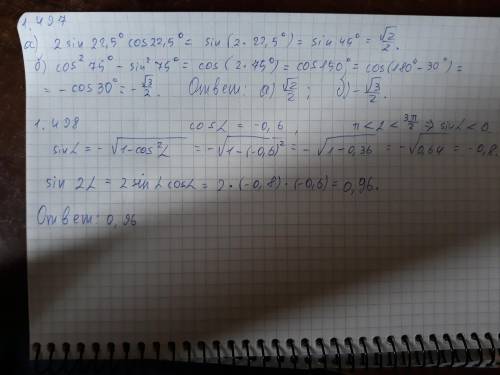 1.497
а) 2 sin 22,5° cos 22,5° = sin (2 · 22,5°) = sin 45° = √2/2.
б) cos² 75° - sin² 75° = cos (2 · 75°) = cos 150° = cos (180° - 30°) =
= - cos 30° = - √3/2. Ответ: а) √2/2; б) - √3/2.
1.498 cos L = -0,6, π < L < 3π/2 ⇒ sin L < 0
sin L = - √1-cos²L = -√1-(-0,6)² = -√1-0,36 = -√0,64 = -0,8.
sin 2L = 2 sin L cos L = 2 · (-0,8) · (-0,6) = 0,96.
Ответ: 0,96